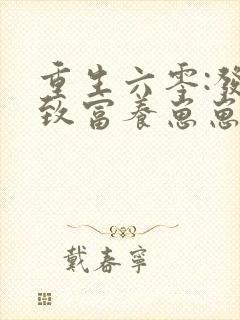 重生六零:發
致富養崽崽
戴春寧